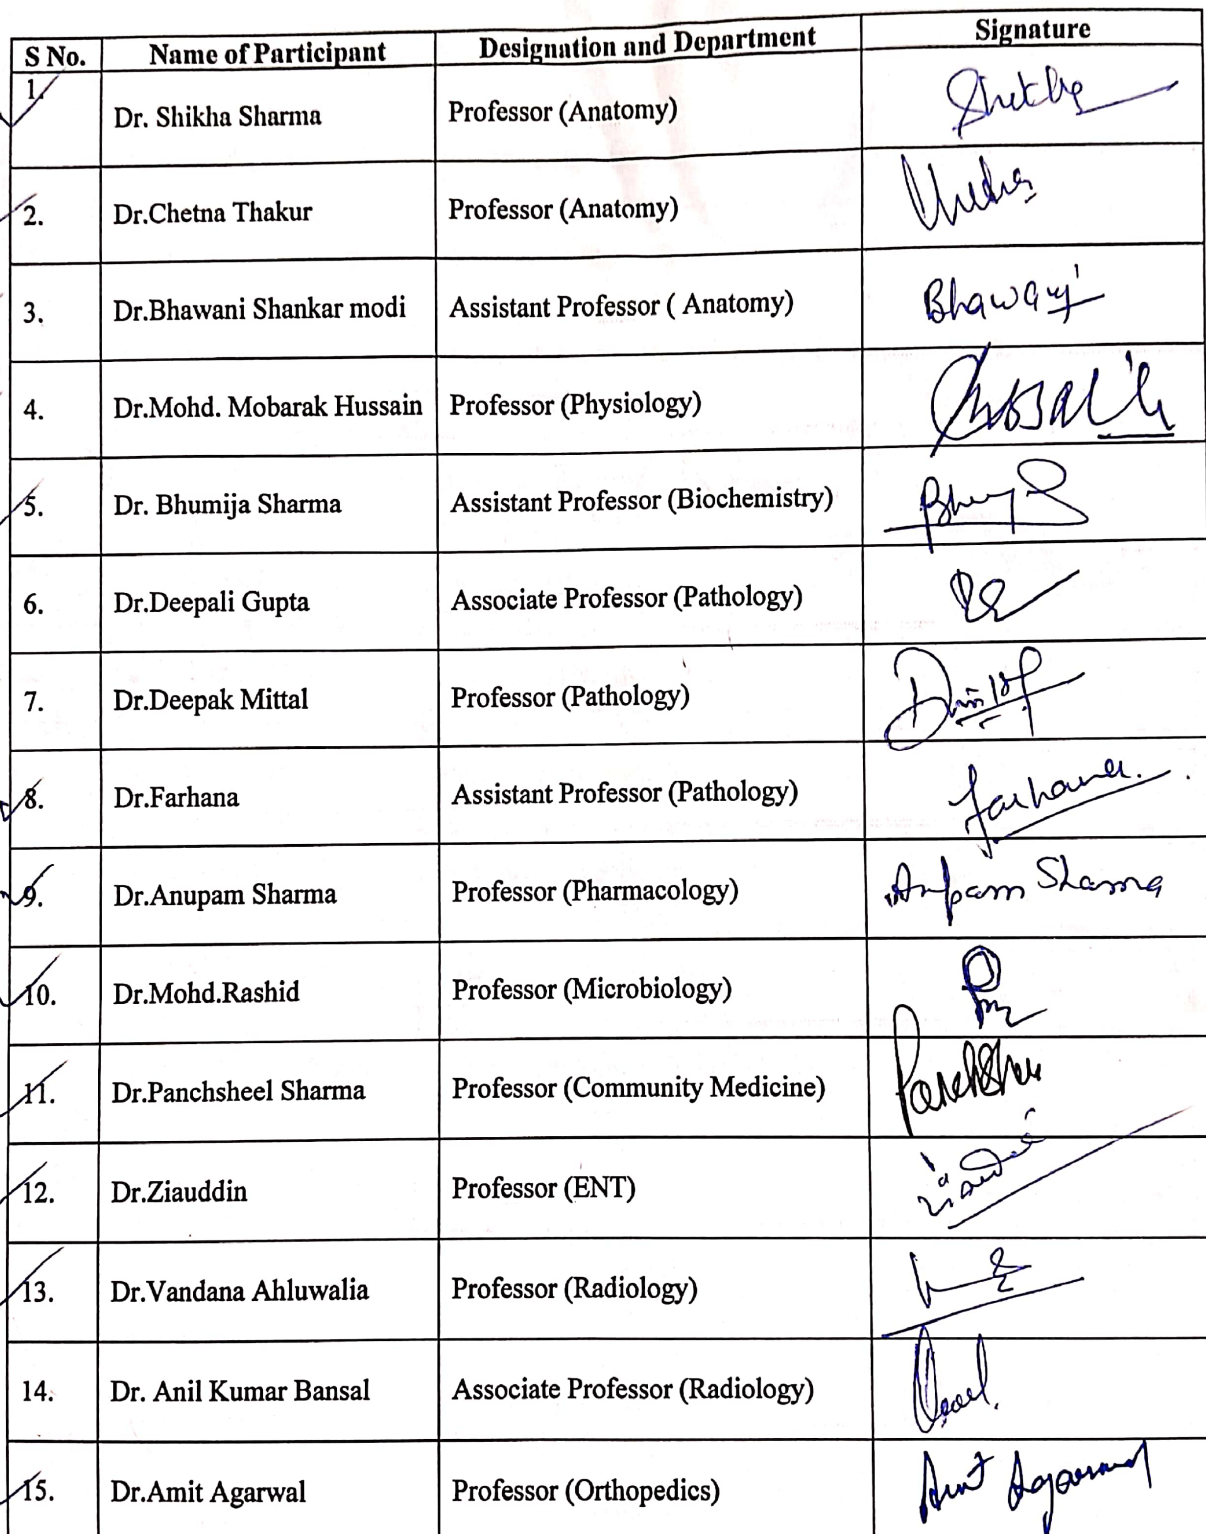 S No. Name of Participant Designation and Department Signature
1. Dr. Shikha Sharma Professor (Anatomy) Shikha
2. Dr.Chetna Thakur Professor (Anatomy)
3. Dr.Bhawani Shankar modi Assistant Professor ( Anatomy) Bhawani
4. Dr.Mohd. Mobarak Hussain Professor (Physiology)
5. Dr. Bhumija Sharma Assistant Professor (Biochemistry)
6. Dr.Deepali Gupta Associate Professor (Pathology)
7. Dr.Deepak Mittal Professor (Pathology)
8. Dr.Farhana Assistant Professor (Pathology) Farhana.
9. Dr.Anupam Sharma Professor (Pharmacology) Anupam Sharma
10. Dr.Mohd.Rashid Professor (Microbiology)
11. Dr.Panchsheel Sharma Professor (Community Medicine)
12. Dr.Ziauddin Professor (ENT)
13. Dr.Vandana Ahluwalia Professor (Radiology)
14. Dr. Anil Kumar Bansal Associate Professor (Radiology)
15. Dr.Amit Agarwal Professor (Orthopedics) Amit Agarwal